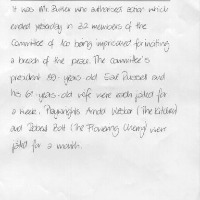 It was Mr. Zuiser who authorised action which
ended yesterday in 32 members of the
Committee of 100 being imprisoned for inciting
a breach of the peace. The committee's
president 89-years-old Earl Russell and
his 61-years-old wife were each jailed for
a week. Playwrights Arnold Wesker (The Kitchen)
and Robert Bolt (The Flowering Cherry) were
jailed for a month.